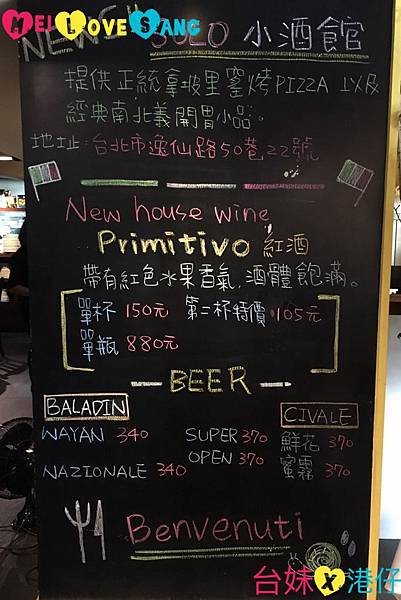 HEI LOVE SANG
NEW SOLO 小酒館
提供正統拿坡里窯烤PIZZA 以及
經典南北義開胃小品。
地址:台北市逸仙路50巷22號
New house wine
Primitivo 紅酒
帶有紅色水果香氣,酒體飽滿。
單杯 150元 第二杯特價 105元
單瓶 880元
BEER
BALADIN CIVALE
WAYAN 340 SUPER 370 鮮花 370
NAZIONALE 340 OPEN 370 蜜霧 370
Benvenuti
台妹X港仔